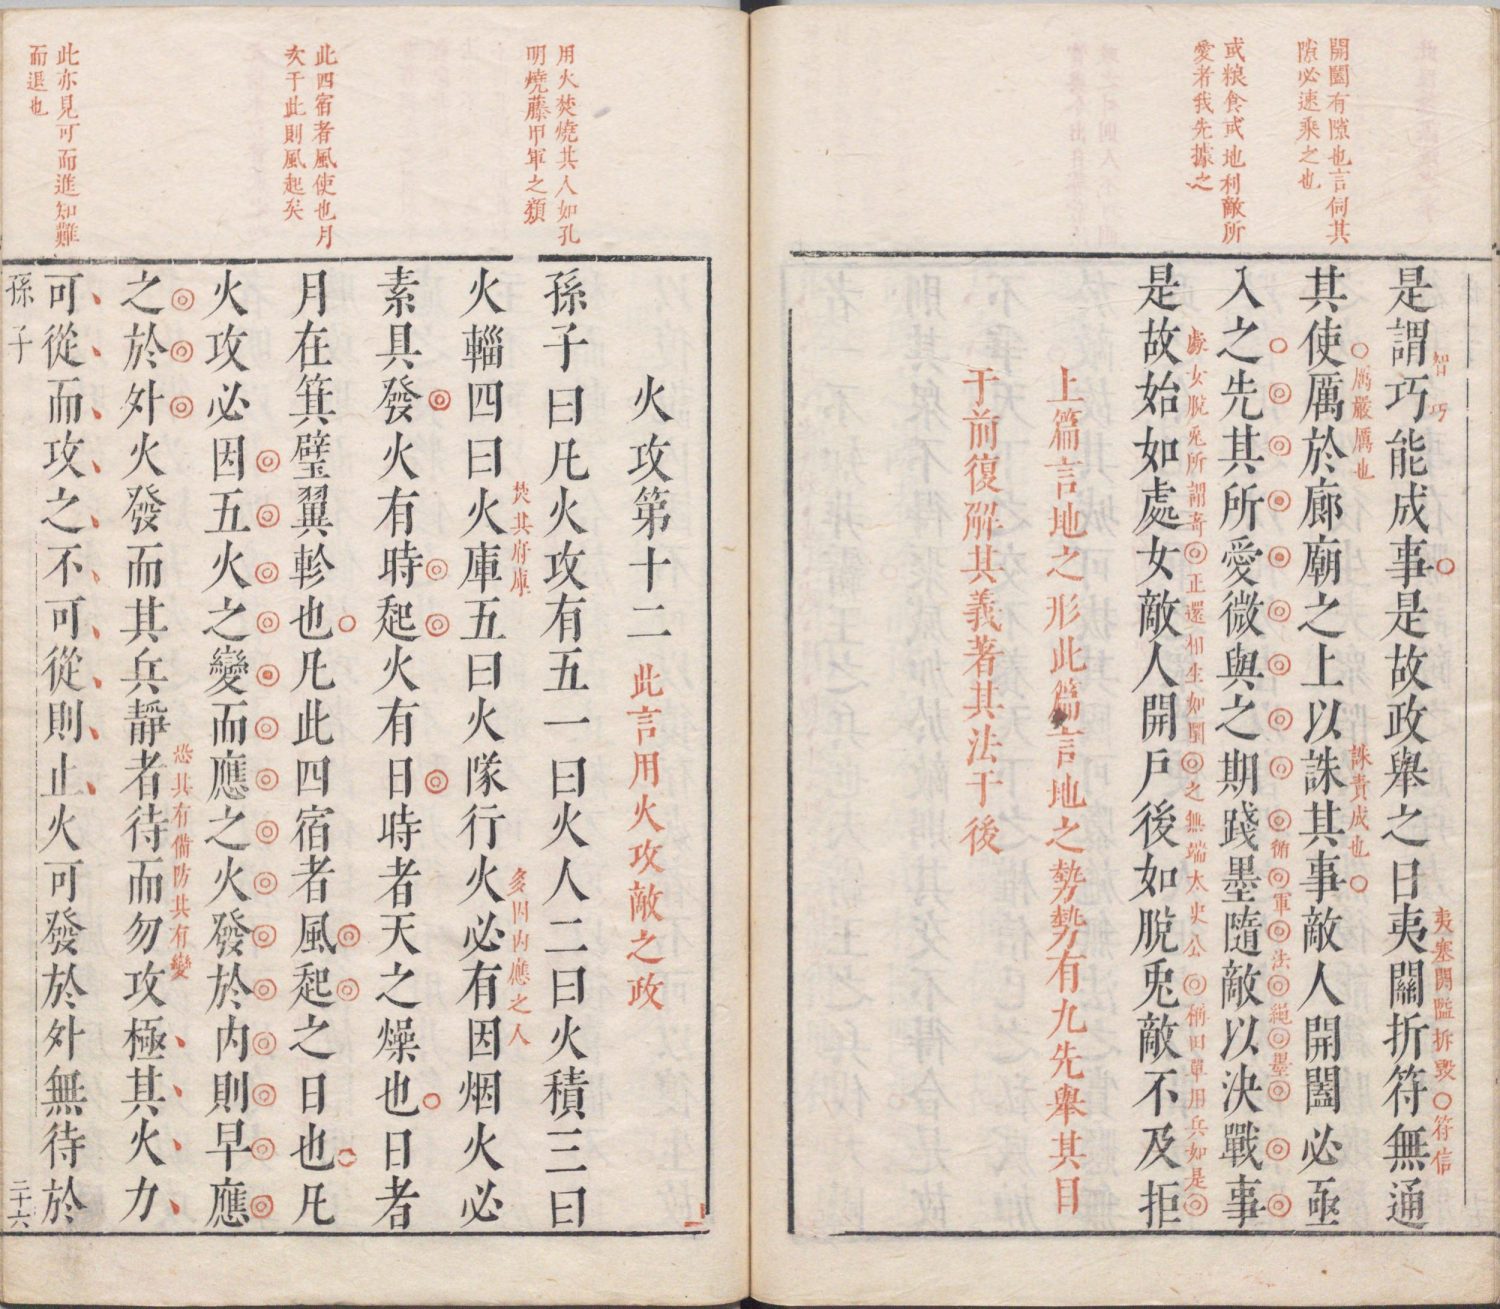 開闔有隙也言伺其
隙必速乘之也
或粮食或地利敵所
愛者我先據之
是謂巧能成事是故政舉之日夷關折符無通
智巧
夷塞関隘拆毀符信
其使厲於廊廟之上以誅其事敵人開闔必亟
厲嚴厲也
誅責成也
入之先其所愛微與之期踐墨隨敵以決戰事
循軍法繩墨
是故始如處女敵人開戶後如脫兎敵不及拒
處女脫兎所謂竒正還相生如闤之無端太史公称田單用兵如是
上篇言地之形此篇言地之勢勢有九先舉其目
于前復解其義著其法于後
用火焚燒其人如孔
明燒藤甲軍之類
此四宿者風使也月
次于此則風起矣
此亦見可而進知難
而退也
火攻第十二
此言用火攻敵之政
孫子曰凡火攻有五一曰火人二曰火積三曰
火輜四曰火庫五曰火隊行火必有因烟火必
焚其府庫
多因内應之人
素具發火有時起火有日時者天之燥也日者
月在箕壁翼軫也凡此四宿者風起之日也凡
火攻必因五火之變而應之火發於内則早應
之於外火發而其兵靜者待而勿攻極其火力
恐其有備防其有變
可從而攻之不可從則止火可發於外無待於
孫子
二十六